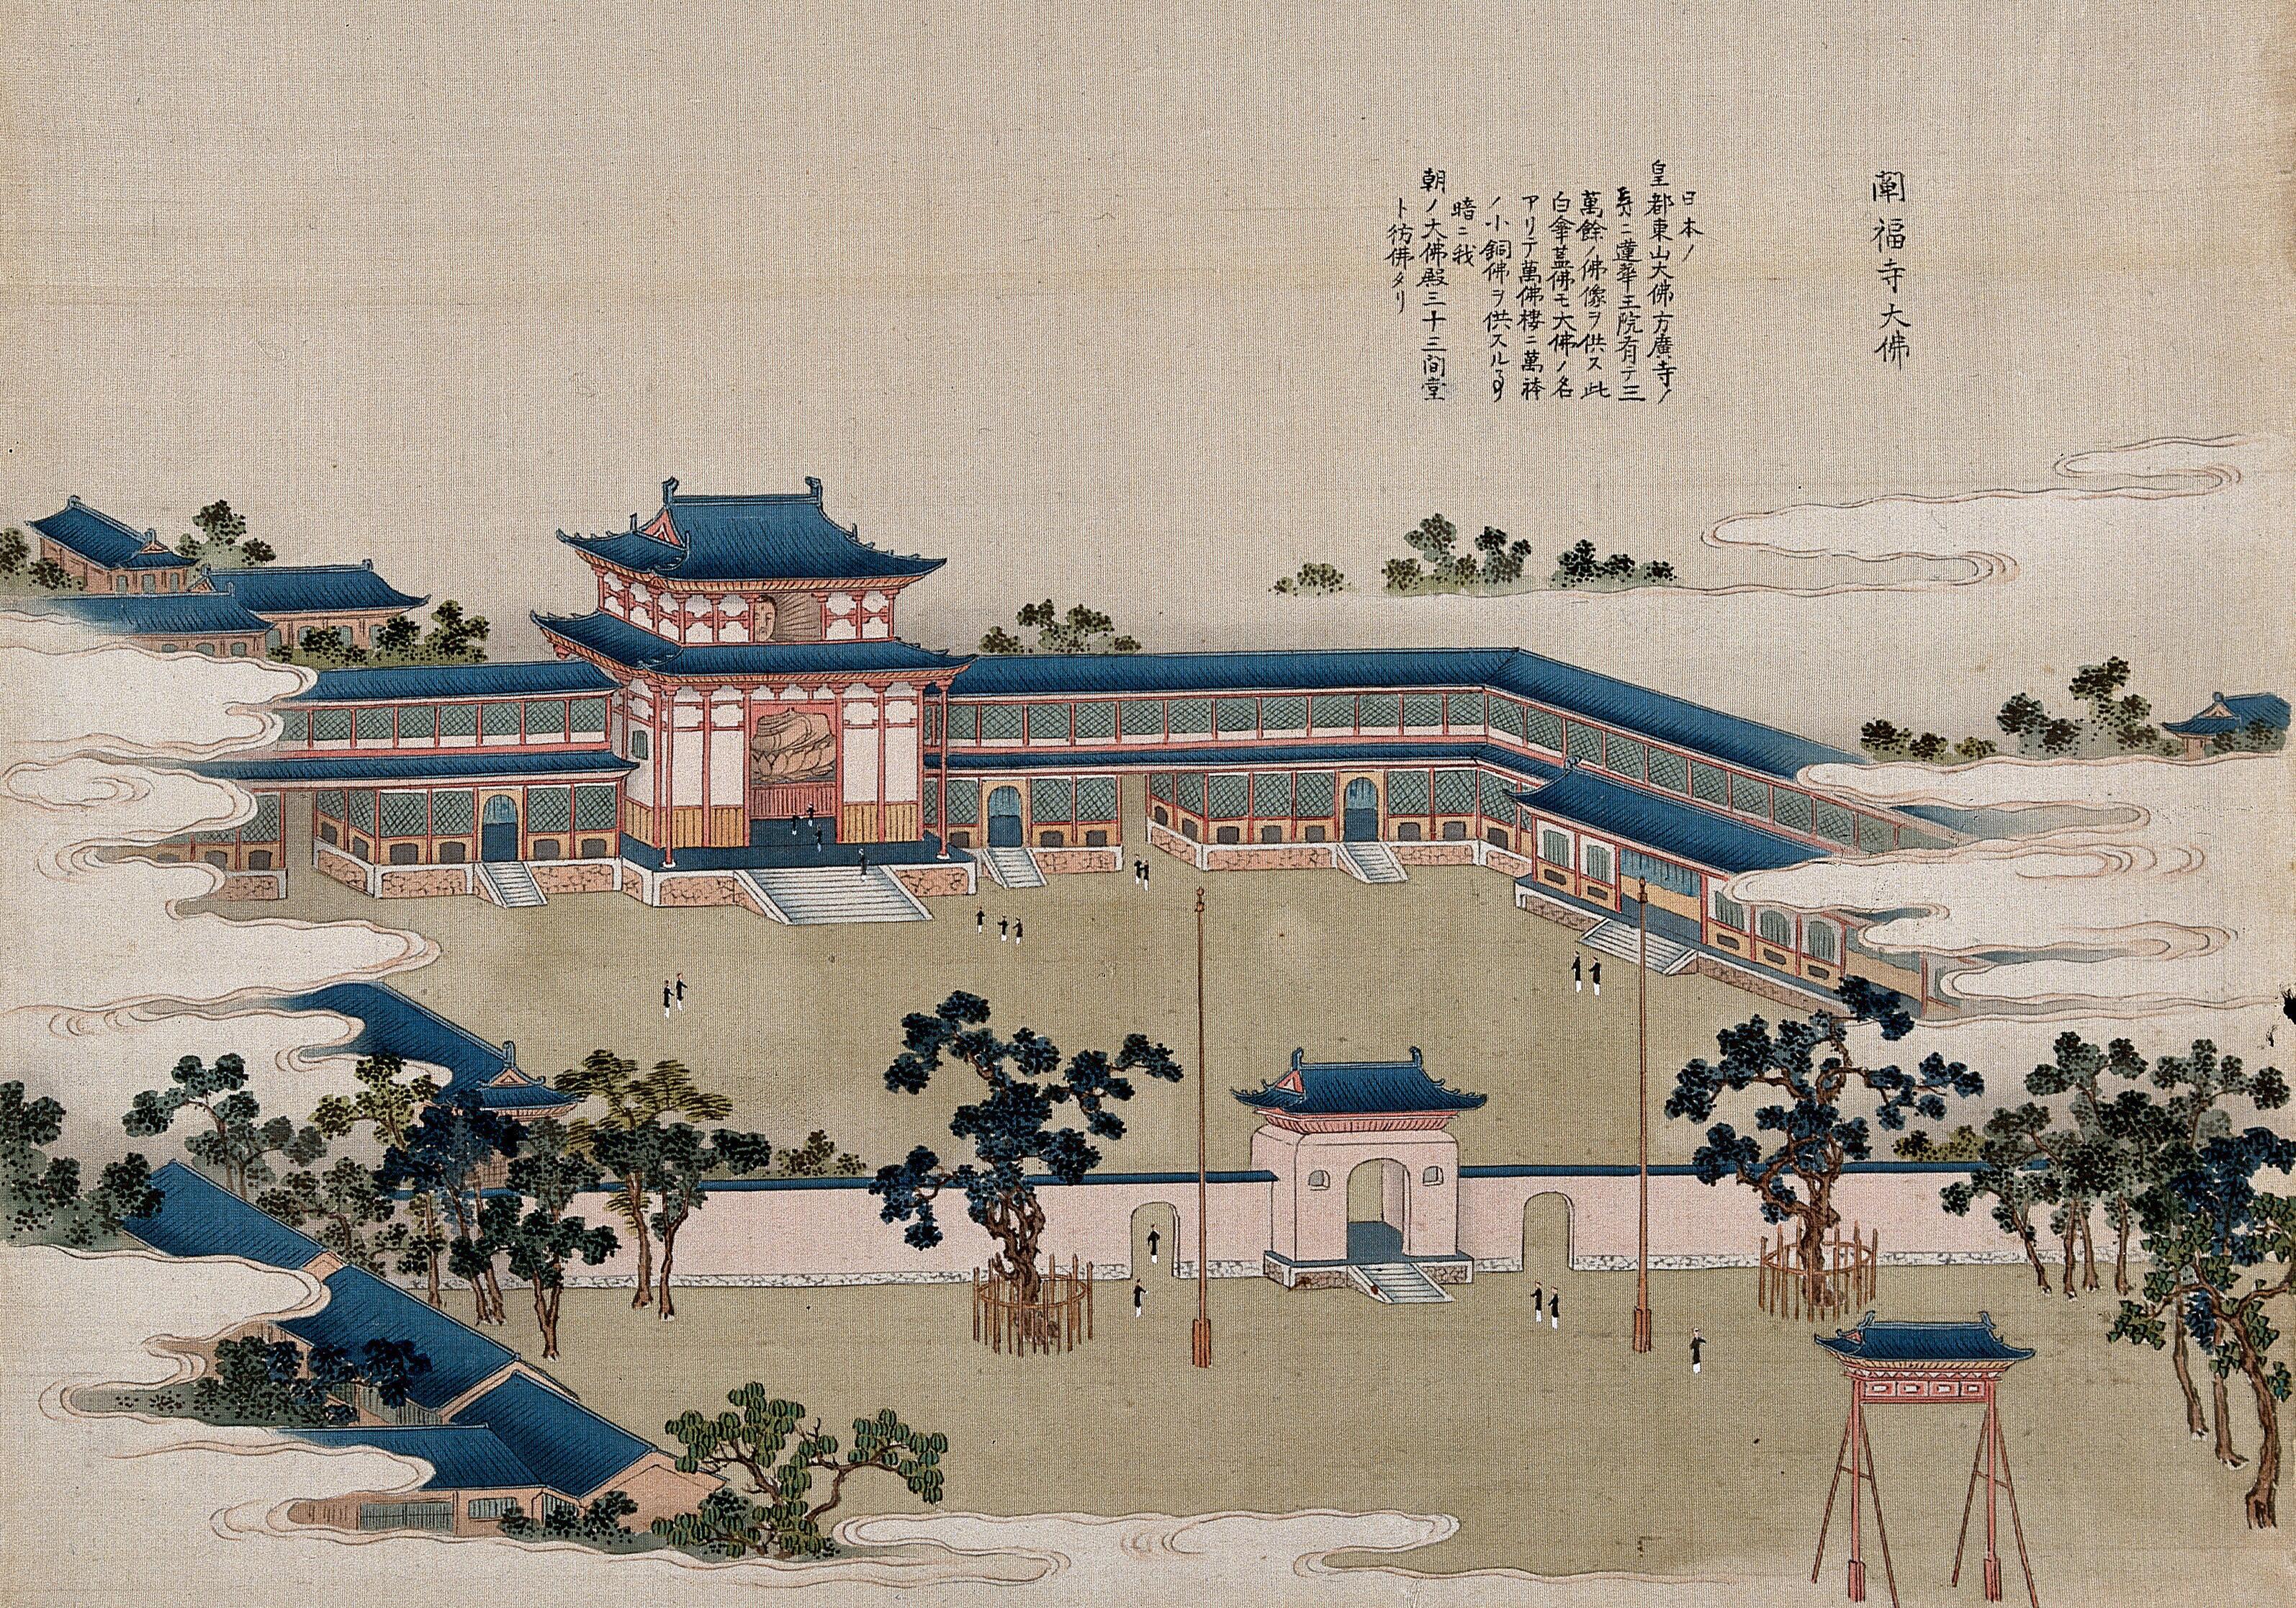 闡福寺大佛
日本ノ
皇都東山大佛方廣寺ノ
ニ蓮華王院有テ三
萬餘ノ佛像ヲ供ス此
白傘蓋佛モ大佛ノ名
アリテ萬佛樓ニ萬
ノ小銅佛ヲ供スル
暗ニ我
朝ノ大佛殿三十三間堂
ト彷佛タリ